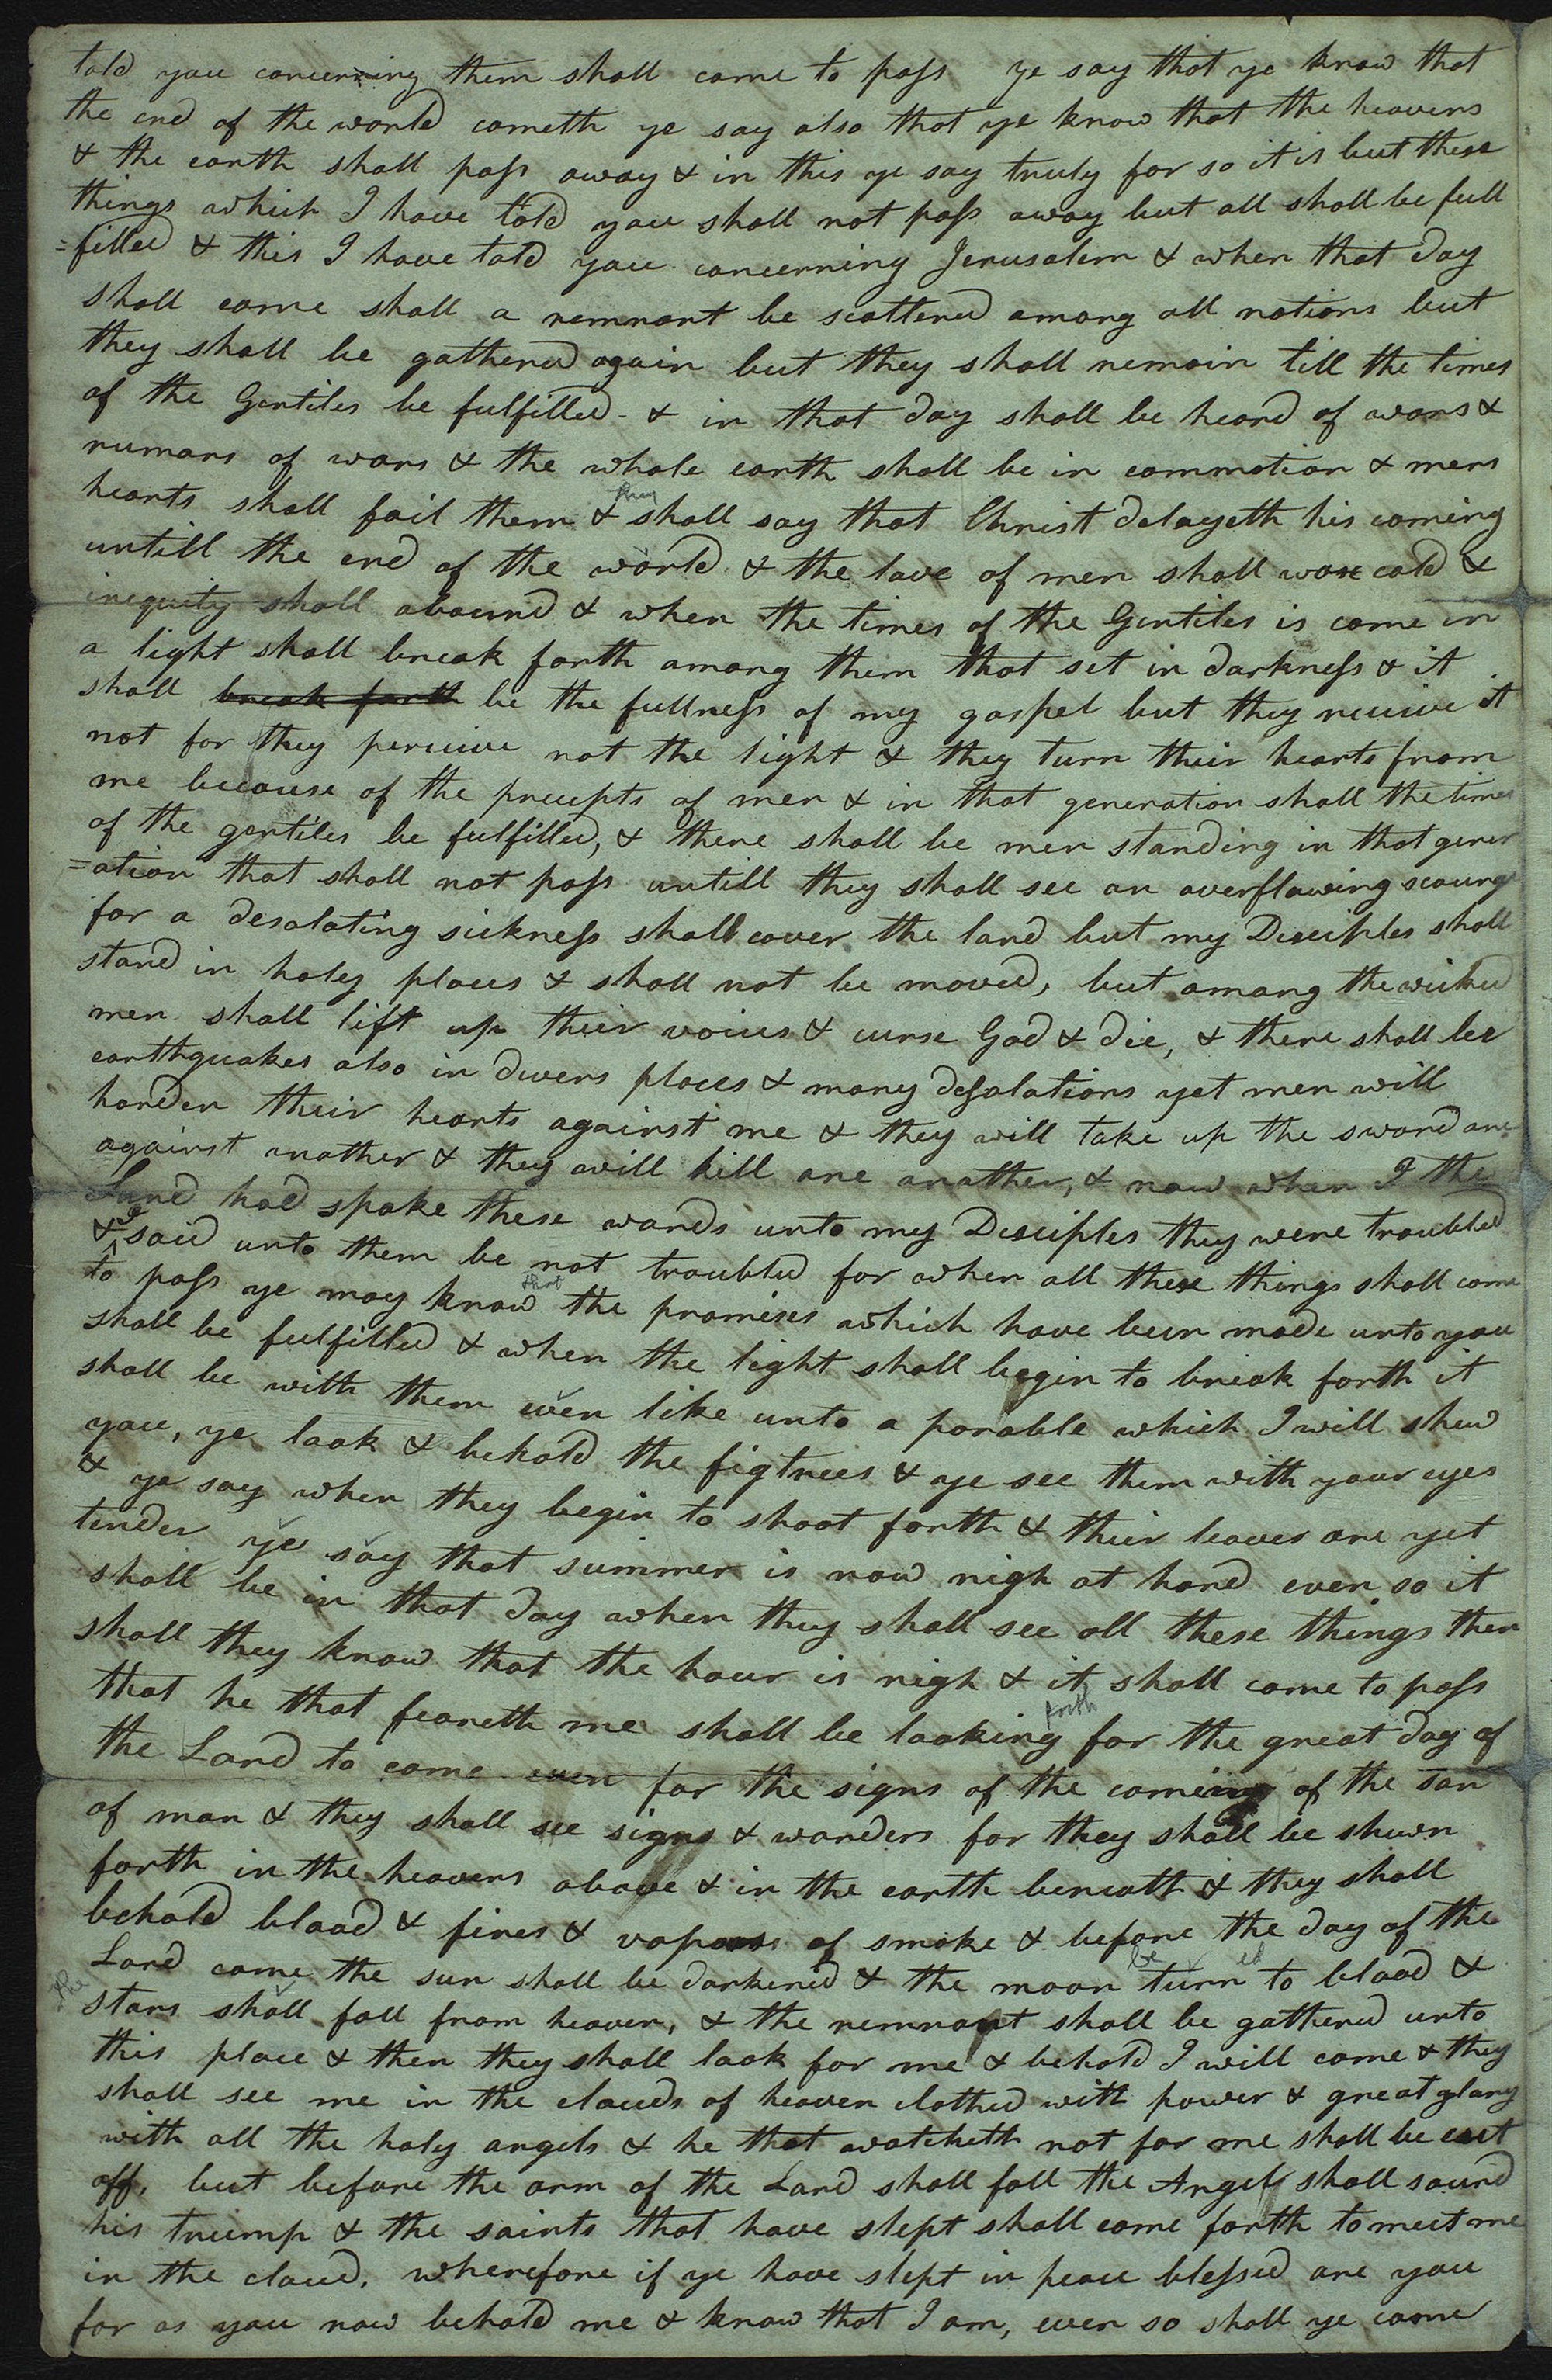 told you concerning them shall come to pass ye say that ye know that
the end of the world cometh ye say also that ye know that the heavens
& the earth shall pass away & in this ye say truly for so it is but these
things which I have told you shall not pass away but all shall be full
=filled & this I have told you concerning Jerusalem & when that day
shall come shall a remnant be scattered among all nations but
they shall be gathered again but they shall remain till the times
of the Gentiles be fulfilled & in that day shall be heard of wars &
rumors of wars & the whole earth shall be in commotion & mens
hearts shall fail them & they shall say that Christ delayeth his coming
untill the end of the world & the love of men shall wax cold &
inequity shall abound & when the times of the Gentiles is come in
a light shall break forth among them that set in darkness & it
shall break forth be the fullness of my gospel but they receive it
not for they perceive not the light & they turn their hearts from
me because of the precepts of men & in that generation shall the times
of the gentiles be fulfilled, & there shall be men standing in that gener
=ation that shall not pass untill they shall see an overflowing scourge
for a desolating sickness shall cover the land but my Desciples shall
stand in holy places & shall not be moved, but among the wicked
men shall lift up their voices & curse God & die, & there shall be
earthquakes also in divers places & many desolations yet men will
harden their hearts against me & they will take up the sword one
against another & they will kill one another, & now when I the
Lord had spoke these words unto my Desciples they were troubled
& I said unto them be not troubled for when all these things shall come
to pass ye may know that the promises which have been made unto you
shall be fulfilled & when the light shall begin to break forth it
shall be with them even like unto a parable which I will shew
you, ye look & behold the figtrees & ye see them with your eyes
& ye say when they begin to shoot forth & their leaves are yet
tender ye say that summer is now nigh at hand even so it
shall be in that day when they shall see all these things then
shall they know that the hour is nigh & it shall come to pass
that he that feareth me shall be looking forth for the great day of
the Lord to come even for the signs of the coming of the son
of man & they shall see signs & wonders for they shall be shewn
forth in the heavens above & in the earth beneath & they shall
behold blood & fires & vapors of smoke & before the day of the
Lord come the sun shall be darkened & the moon be turned to blood &
the stars shall fall from heaven, & the remnant shall be gathered unto
this place & then they shall look for me & behold I will come & they
shall see me in the clouds of heaven clothed with power & great glory
with all the holy angels & he that watcheth not for me shall be cut
off, but before the arm of the Lord shall fall the Angel shall sound
his trump & the saints that have slept shall come forth to meet me
in the cloud, wherefore if ye have slept in peace blessed are you
for as you now behold me & know that I am, even so shall ye come